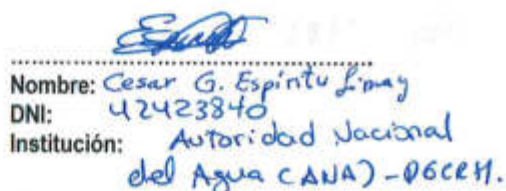 Nombre: Cesar G. Espíritu Limay
DNI: 42423840
Institución: Autoridad Nacional
del Agua (ANA) - DGCRH.